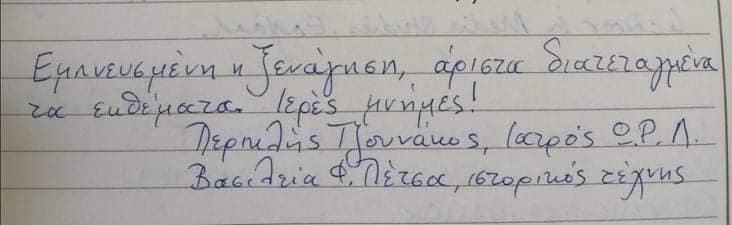 Εμπνευσμένη η ξενάγηση, άριστα διατεταγμένα
τα εκθέματα. Ιερές μνήμες!
Περικλής Τζουνάκος, Ιατρός Ω.Ρ.Λ.
Βασιλεία Φ. Πέτσα, ιστορικός τέχνης